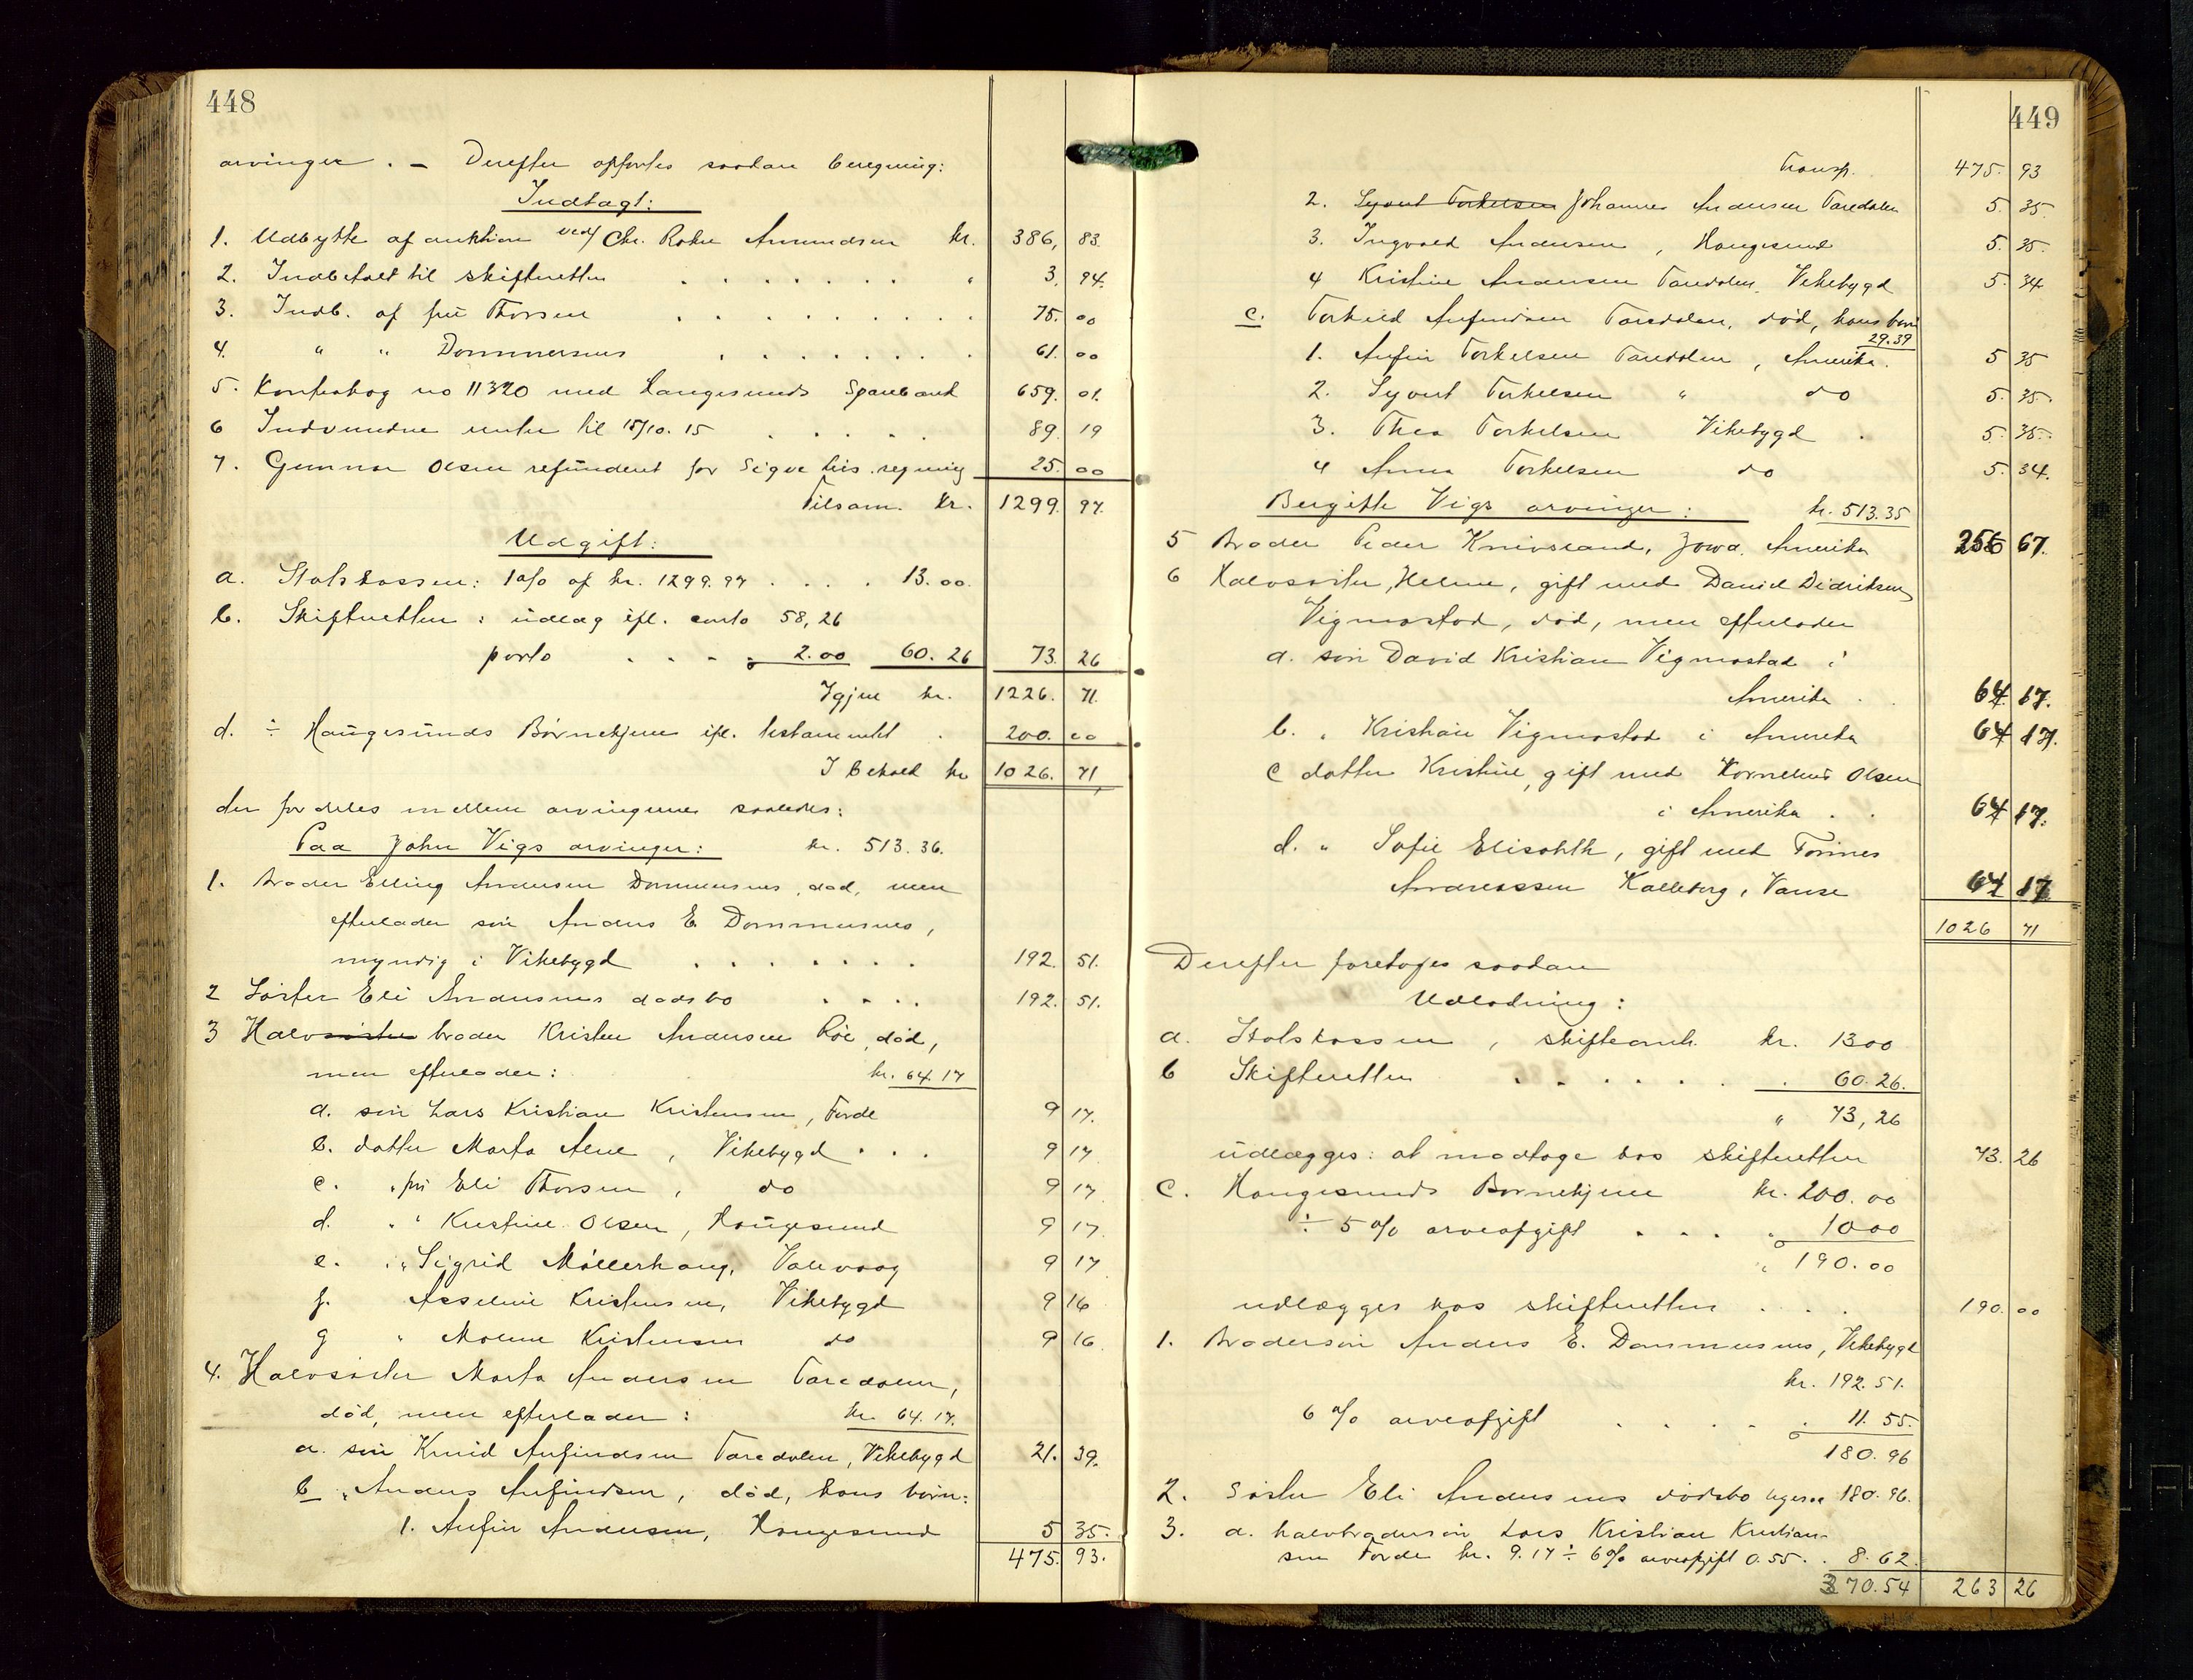 448
arvinger. – Derefter opførtes saadan beregning:
Indtægt:
1. Udbytte af auktion ved Chr. Rohn Amundsen kr. 386, 83.
2. Indbetalt til skifteretten . . . . . . . " 3. 94.
3. Indb. af fru Thorsen . . . . . . . . . 75. 00
4. " " Dommersnes . . . . . . . 61. 00
5. Kontrabog no 11320 med Haugesunds Sparebank 659. 01.
6 Indvundne renter til 15/10. 15 . . . . . 89. 19
7. Gunnar Olsen refunderet for Sigve 's regning 25. 00
Tilsam. kr. 1299. 97.
Udgift:
a. Statskassen: 1 o/o af kr. 1299.97 . . . . 13.00.
b. Skifteretten: udlæg ifl. conto 58,26
porto . . . . 2.00 60.26 73. 26
Igjen kr. 1226. 71.
d. ÷ Haugesunds Børnehjem ifl. testamentet . 200. 00
I behold kr 1026. 71,
der fordeles mellem arvingerne saaledes:
Paa John Vigs arvinger: kr. 513.36.
1. broder Elling Andersen Dommersnes, død, men
efterlader søn Anders E. Dommersnes,
myndig i Vikebygd . . . . . . . 192. 51.
2 Søster Eli Andersnes dødsbo . . . . 192. 51.
3 Halvsøster broder Kristen Andersen Røe, død,
men efterlader: kr. 64.17
a. søn Lars Kristian Kristensen, Førde 9 17.
b. datter Marta Alne, Vikebygd . . . 9 17
c. " fru Eli Thorsen, do 9 17
d. " " Kristine Olsen, Haugesund 9 17.
e. " " Sigrid Møllerhaug, Valevaag 9 17
f. Asseline Kristensen, Vikebygd 9 16
g " Malene Kristensen do 9 16
4. Halvsøster Marta Andersen Taredalen,
død, men efterlader: kr. 64.17.
a. søn Knud Anfindsen Taredalen, Vikebygd 21. 39.
b " Anders Anfindsen, død, hans børn:
1. Anfin Andersen, Haugesund 5 35.
475. 93.
449
Transp. 475. 93
2. Syvert Torkelsen Johannes Andersen Taredalen 5. 35.
3. Ingvald Andersen, Haugesund 5. 35.
4 Kristine Andersen Taredalen, Vikebygd 5. 34
c. Torkild Anfindsen Taredalen, død, hans børn
29.39
1. Anfin Torkelsen Taredalen, Amerika. 5 35
2. Syvert Torkelsen " do 5. 35.
3. Thea Torkelsen Vikebygd . 5. 35.
4 Anna Torkelsen do 5. 34.
Bergitte Vigs arvinger: kr. 513.35
5 broder Peder Knivsland, Jowa. Amerika 256 67.
6 Halvsøster, Helene, gift med Daniel Didriksen
Vigmostad, død, men efterlader
a. søn David Kristian Vigmostad i
Amerika . . 64 17.
b. " Kristian Vigmostad i Amerika 64 17.
c datter Kristine, gift med Kornelius Olsen
i Amerika . . 64 17.
d. " Sofie Elisabth, gift med Tønnes
Andreassen Kalleberg, Vanse 64 17
1026 71
Derefter foretoges saadan
Udlodning:
a. Statskassen, skifteavk. kr. 1300
b Skifteretten . . . . . . . 60.26.
" 73,26
udlægges: at modtage hos skifteretten 73. 26
c. Haugesunds Børnehjem kr. 200.00
÷ 5 o/o arveafgift . . . . 1000
" 190.00
udlægges hos skifteretten . . . . 190. 00
1. brodersøn Anders E. Dommersnes, Vikebygd
kr. 192.51.
6 o/o arveafgift . . . . . 11.55.
180.96
2. Søster Eli Andersnes dødsbo ligesaa 180.96.
3. a. halvbrodersøn Lars Kristian Kristian-
sen Førde kr. 9.17 ÷ 6 o/o arveafgift 0.55. . 8.62.
370.54 263 26